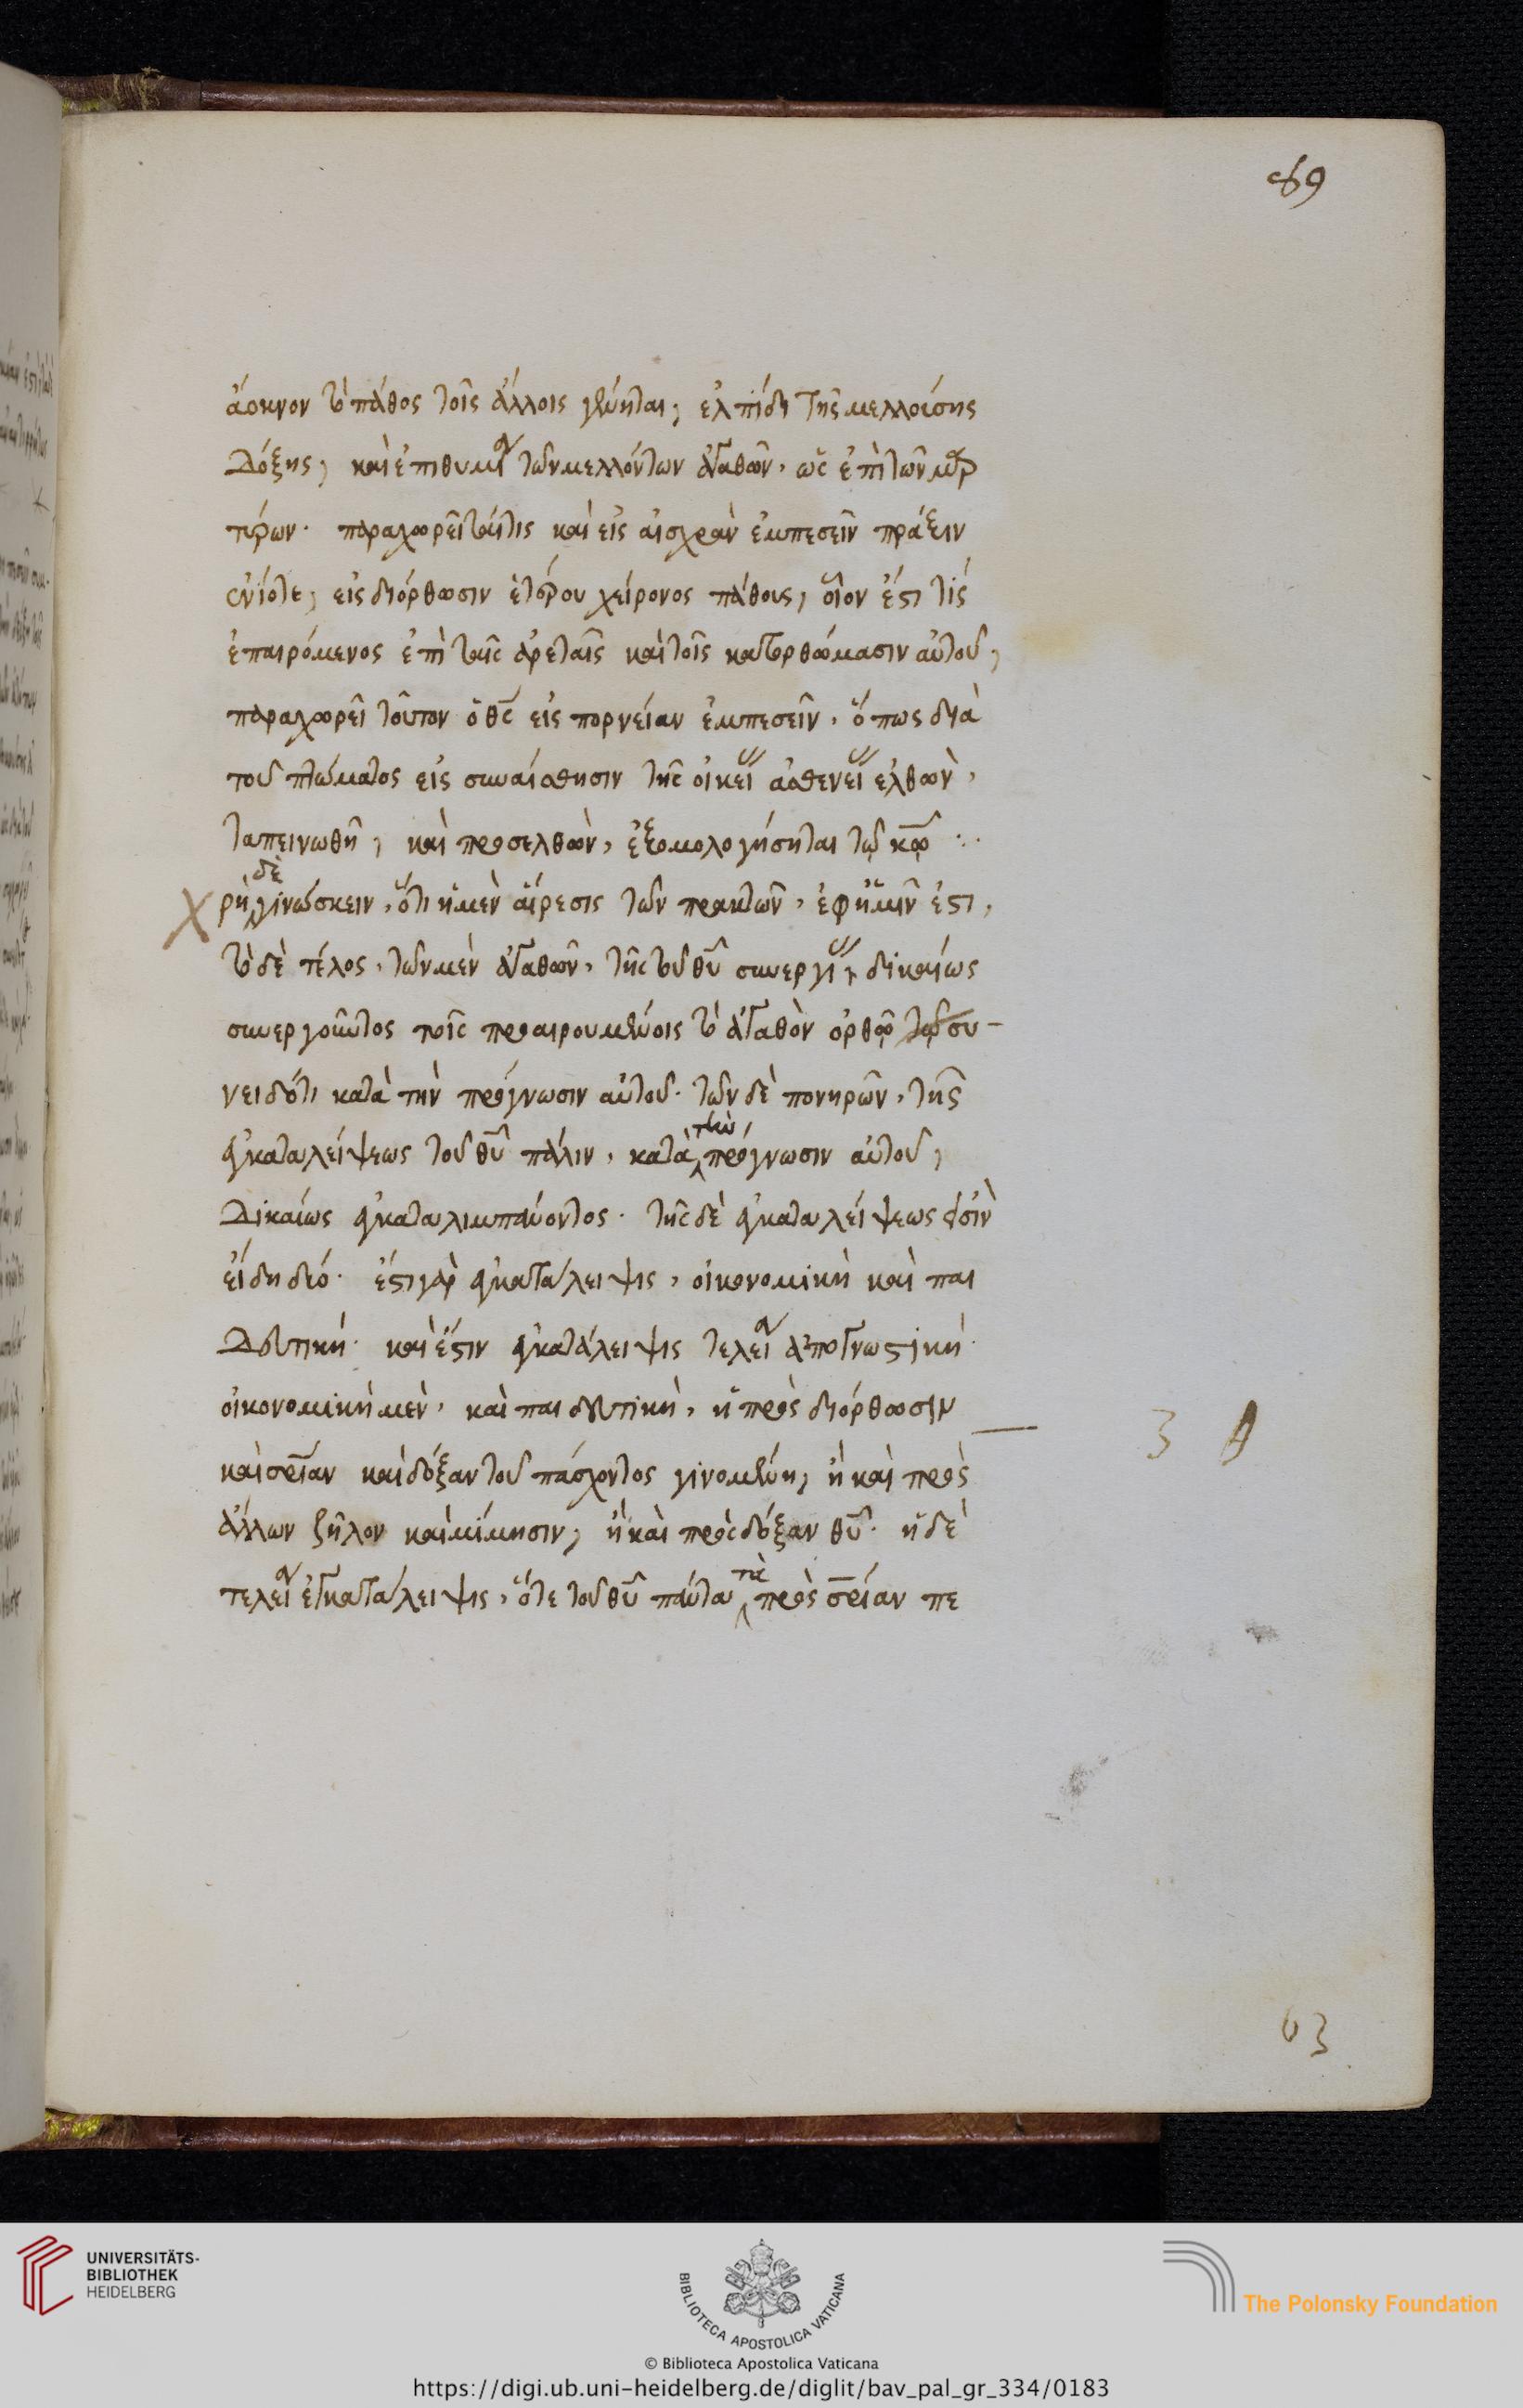 89
ἄοκνον τὸ πάθος τοῖς ἄλλοις γένηται, ἐλπίδι τῆς μελλούσης
δόξης, καὶ ἐπιθυμία τῶν μελλόντων ἀγαθῶν, ὡς ἐπὶ τῶν μαρ
τύρων. παραχωρεῖταί τις καὶ εἰς αἰσχρὰν ἐμπεσεῖν πράξιν
ἐνίοτε, εἰς διόρθωσιν ἑτέρου χείρονος πάθους, οἷον ἔστι τίς
ἐπαιρόμενος ἐπὶ ταῖς ἀρεταῖς καὶ τοῖς κατορθώμασιν αὐτοῦ,
παραχωρεῖ τοῦτον ὁ θς εἰς πορνείαν ἐμπεσεῖν, ὅπως διὰ
τοῦ πτώματος εἰς συναίσθησιν τῆς οἰκείας ἀσθενείας ἐλθὼν,
ταπεινωθῆ, καὶ προσελθὼν, ἐξομολογήσηται τῷ κω :·
Χρὴ δὲ γινώσκειν, ὅτι ἡ μὲν αἵρεσις τῶν πρακτῶν, ἐφ ἡμῖν ἐστι,
τὸ δὲ τέλος, τῶν μὲν ἀγαθῶν, τῆς τοῦ θυ συνεργίας δικαίως
συνεργοῦντος τοῖς προαιρουμένοις τὸ ἀγαθὸν ὀρθῶ τῶ συ-
νειδότι κατὰ τὴν πρόγνωσιν αὐτοῦ. τῶν δὲ πονηρῶν, τῆς
ἐγκαταλείψεως τοῦ θυ πάλιν, κατὰ τὴν πρόγνωσιν αὐτοῦ,
δικαίως ἐγκαταλιμπάνοντος. τῆς δὲ ἐγκαταλείψεως εἰσὶν
εἴδη δύο. ἔστι γὰρ ἐγκατάλειψις, οἰκονομικὴ καὶ παι
δευτική. καὶ ἔστιν ἐγκατάλειψις τελεία ἀπογνωστική.
οἰκονομικὴ μὲν, καὶ παιδευτικὴ, ἡ πρὸς διόρθωσιν
καὶ σρίαν καὶ δόξαν τοῦ πάσχοντος γινομένη, ἢ καὶ πρὸς
ἄλλων ζῆλον καὶ μίμησιν, ἢ καὶ πρὸς δόξαν θυ. ἡ δὲ
τελεία ἐγκατάλειψις, ὅτε τοῦ θυ πάντα τὰ πρὸς σρίαν πε
63
UNIVERSITÄTS-
BIBLIOTHEK
HEIDELBERG
BIBLIOTECA APOSTOLICA VATICANA
The Polonsky Foundation
© Biblioteca Apostolica Vaticana
https://digi.ub.uni-heidelberg.de/diglit/bav_pal_gr_334/0183